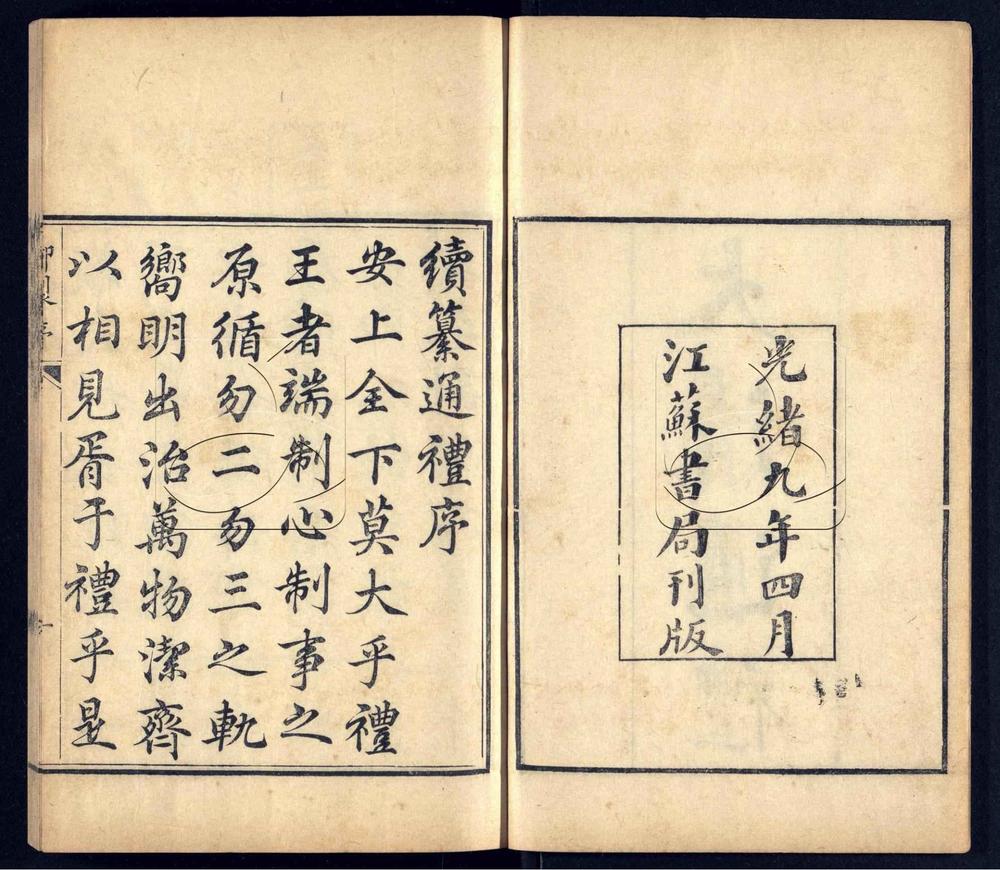 光緒九年四月
江蘇書局刊版
續纂通禮序
安上全下莫大乎禮
王者端制心制事之
原循勿二勿三之軌
嚮明出治萬物潔齊
以相見胥于禮乎是